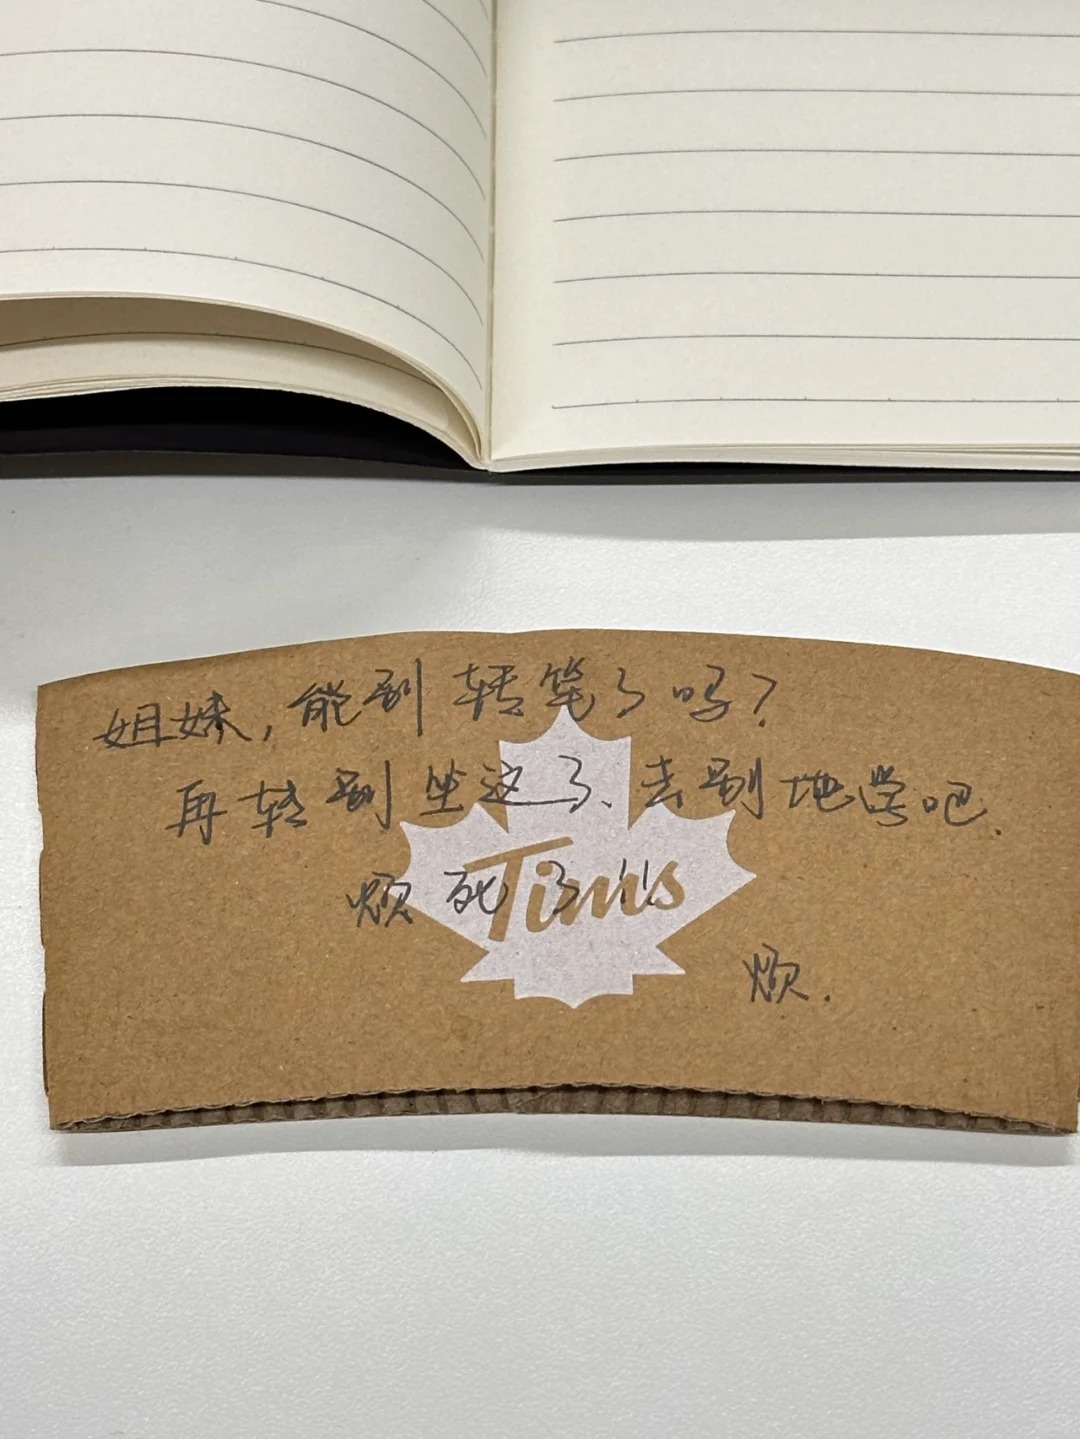 姐妹，能别转笔了吗？
再转别坐这了、去别地学吧.
烦死了!!
Tims
烦.